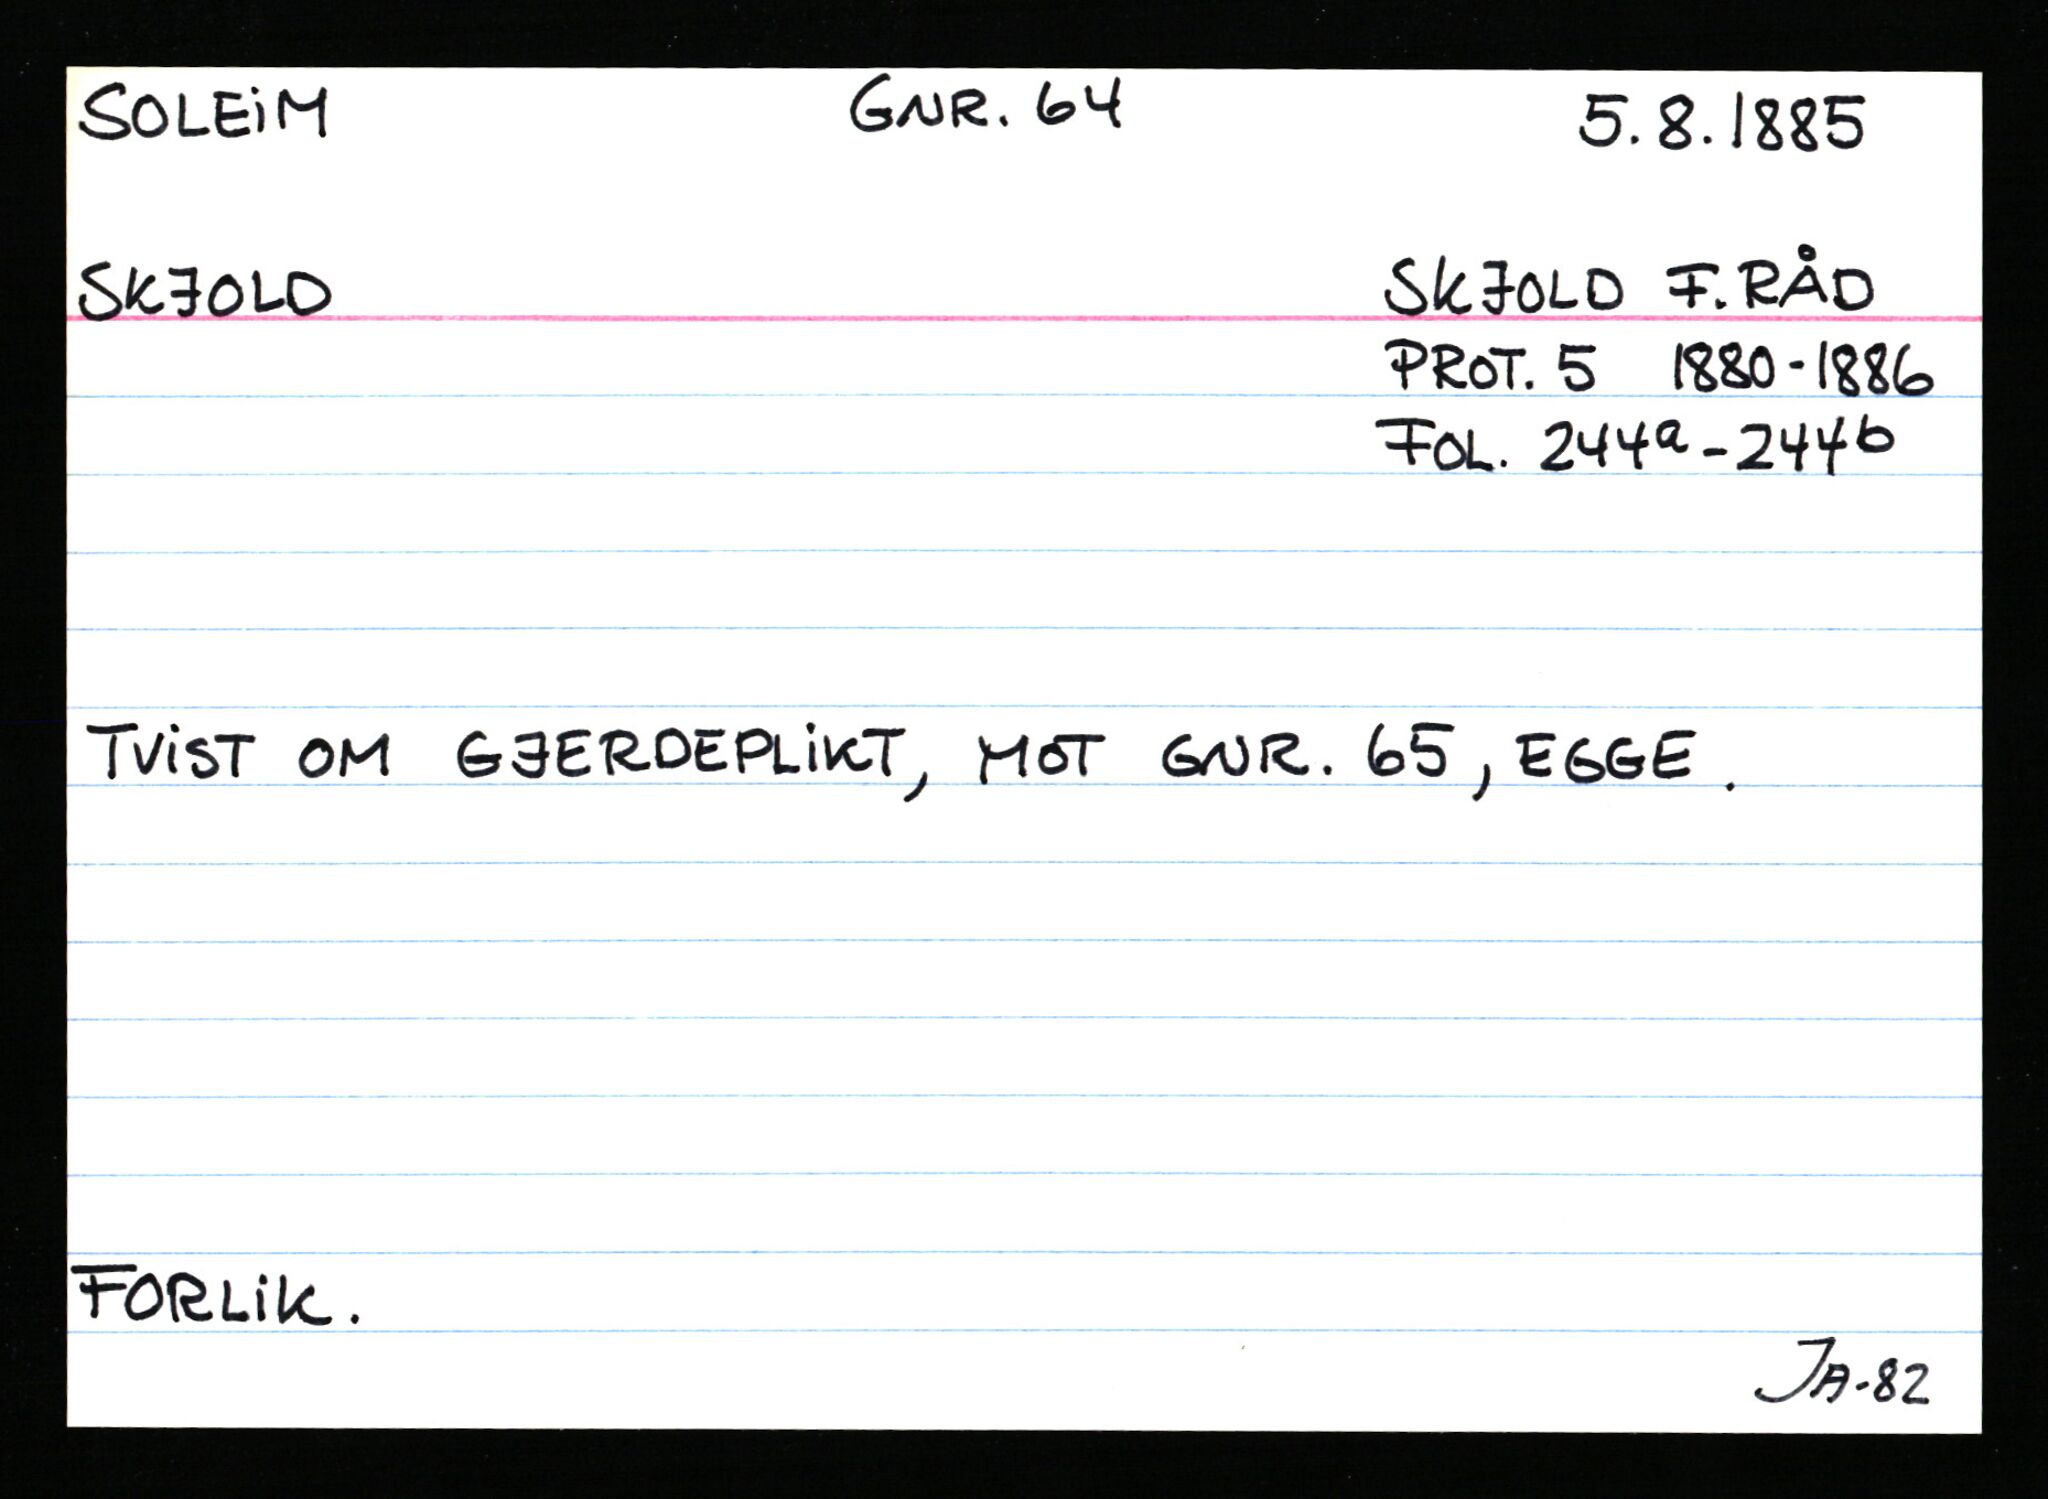 SOLEIM GNR. 64 5.8.1885
SKJOLD SKJOLD F.RÅD
PROT. 5 1880-1886
FOL. 244a-244b
TVIST OM GJERDEPLIKT, MOT GNR. 65, EGGE.
FORLIK.
JA-82